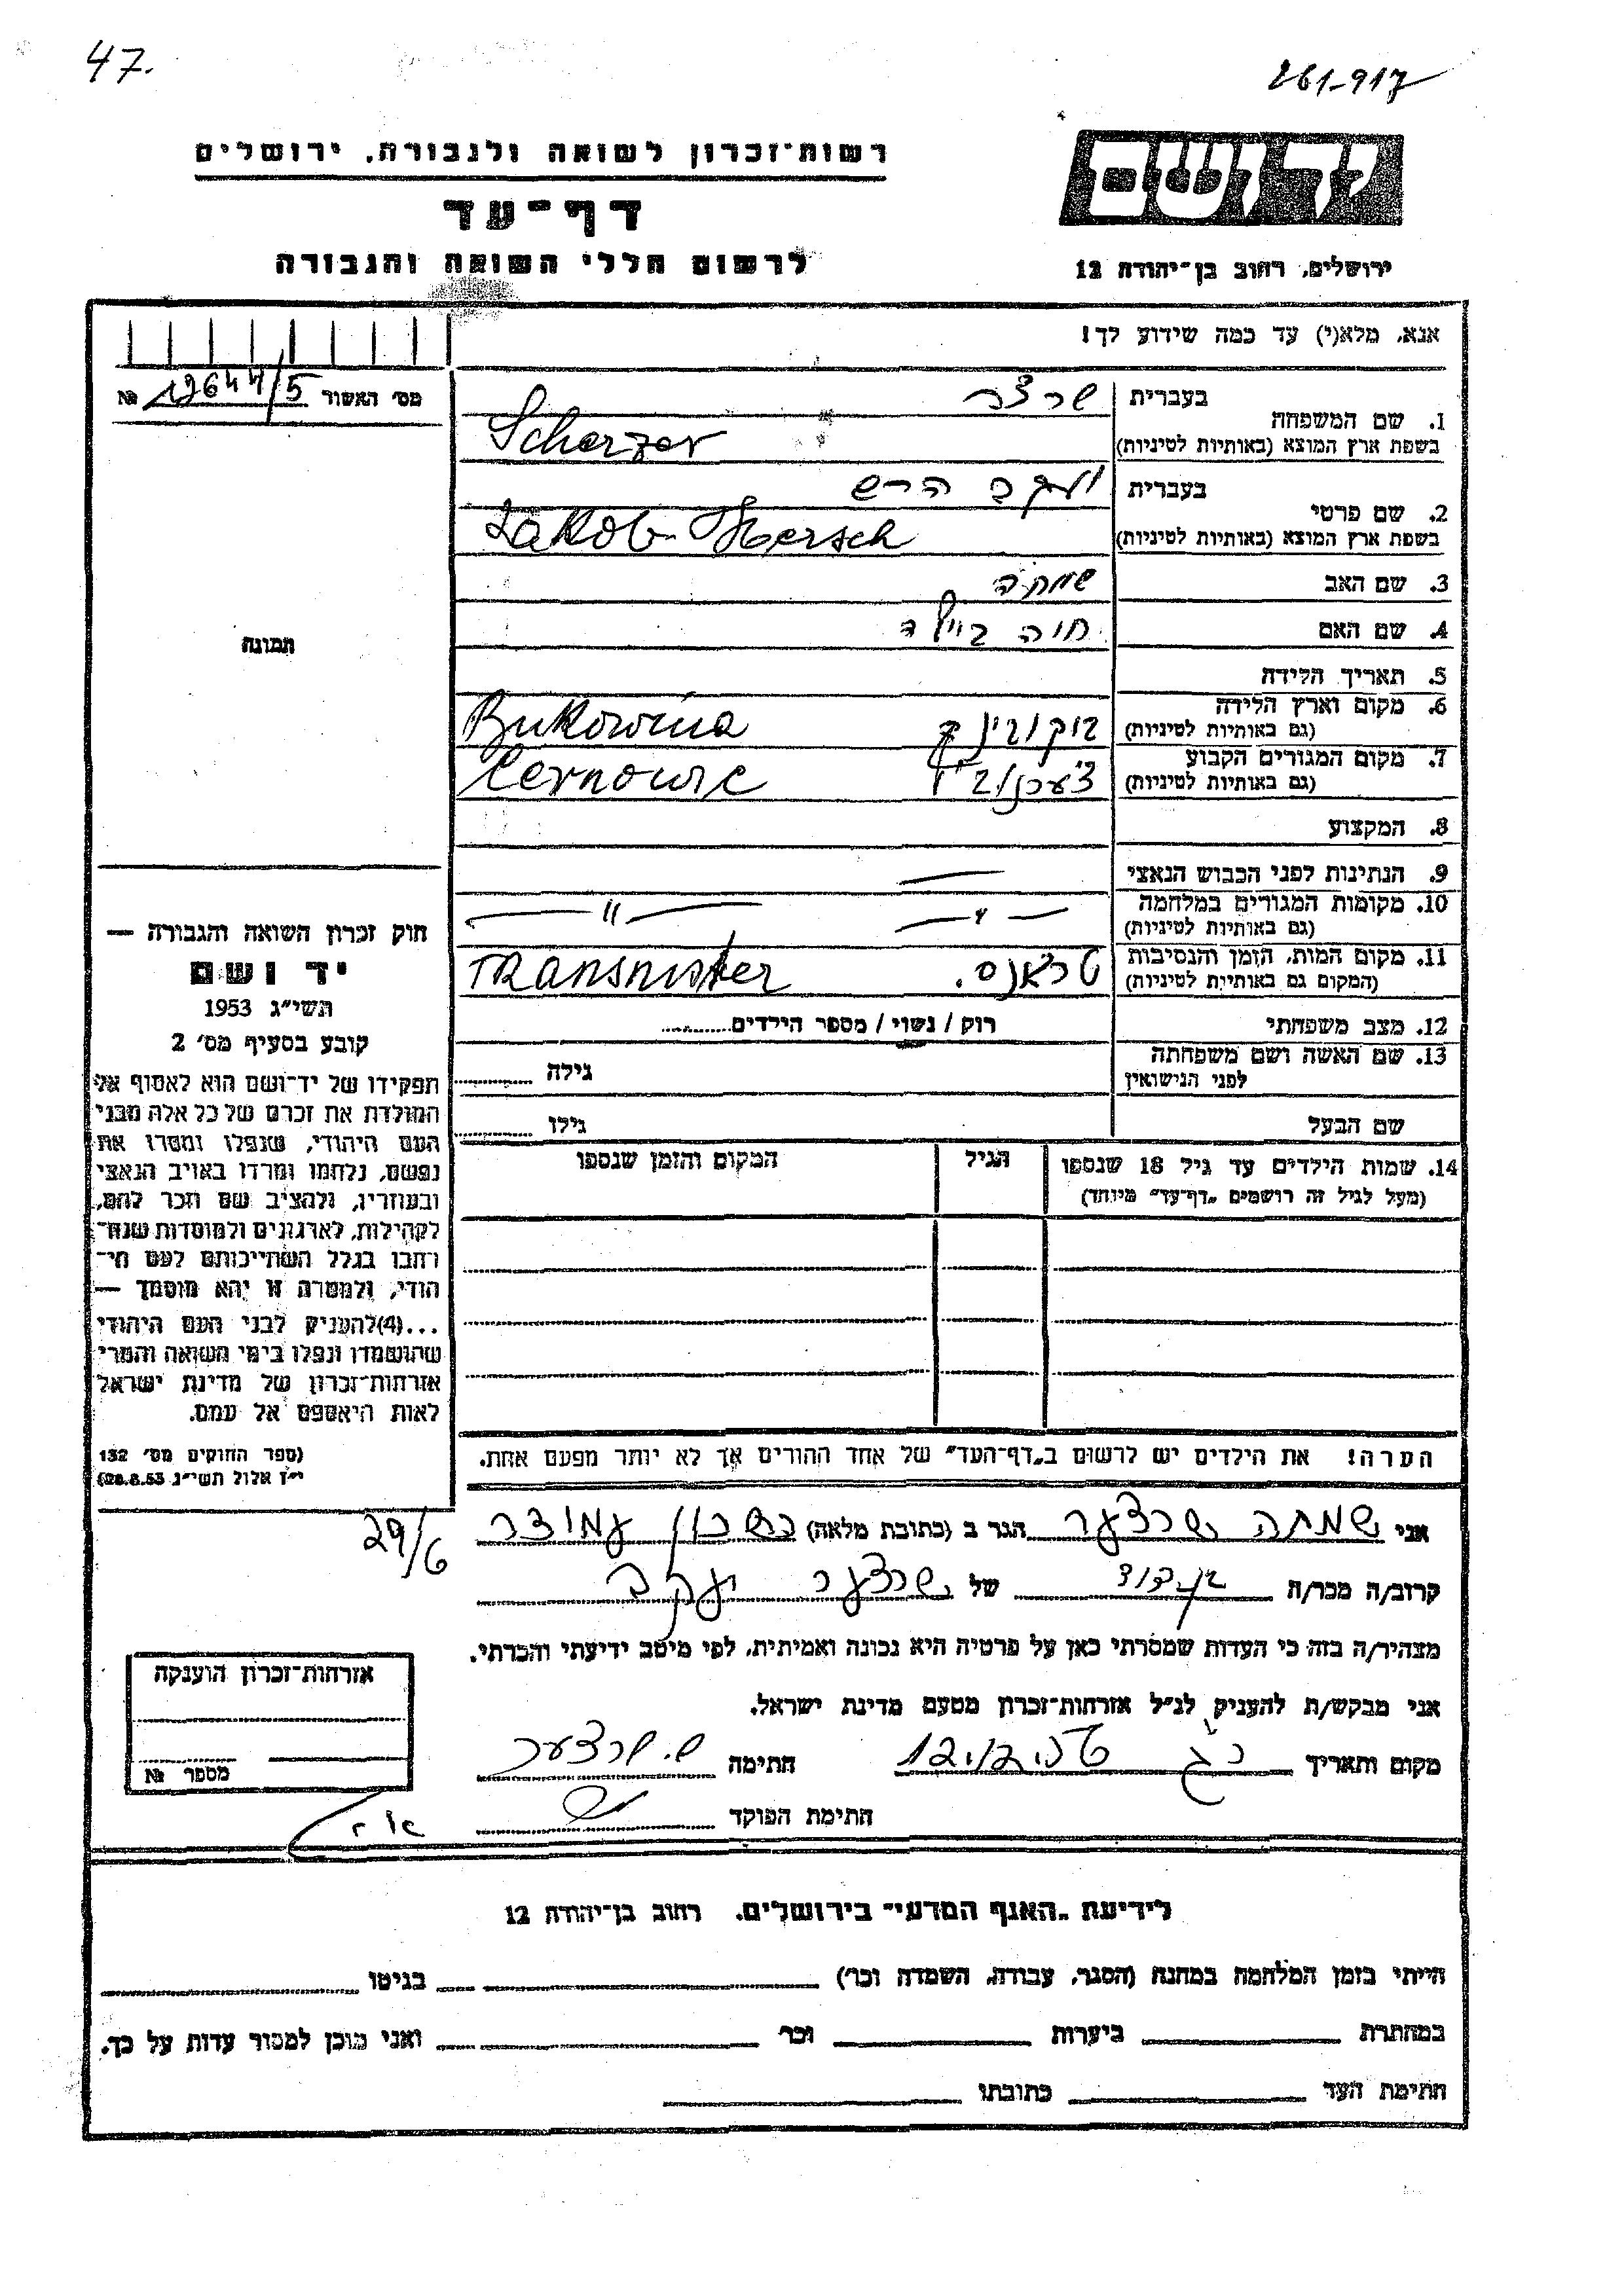 47.
261-917
רשות־זכרון לשואה ולגבורה, ירושלים
דף־עד
לרשום חללי השואה והגבורה
יד ושם
ירושלים, רחוב בן־יהודה 12
אנא, מלא(י) עד כמה שידוע לך!
מס׳ האשור 12644/5 №
תמונה
1. שם המשפחה
בעברית שרצר
בשפת ארץ המוצא (באותיות לטיניות) Scherzer
2. שם פרטי
בעברית יעקב הרש
בשפת ארץ המוצא (באותיות לטיניות) Jakob-Hersch
3. שם האב שמחה
4. שם האם חיה
5. תאריך הלידה
6. מקום וארץ הלידה
(גם באותיות לטיניות) Bukowina
7. מקום המגורים הקבוע
(גם באותיות לטיניות)
8. המקצוע
9. הנתינות לפני הכבוש הנאצי —
10. מקומות המגורים במלחמה
(גם באותיות לטיניות) — 〃 —
11. מקום המות, הזמן והנסיבות
(המקום גם באותיות לטיניות) טראנס. Transnister
12. מצב משפחתי רוק / נשוי / מספר הילדים..........
13. שם האשה ושם משפחתה
לפני הנישואין גילה
שם הבעל גילו
14. שמות הילדים עד גיל 18 שנספו הגיל המקום והזמן שנספו
(מעל לגיל זה רושמים „דף־עד״ מיוחד)
חוק זכרון השואה והגבורה —
יד ושם
תשי״ג 1953
קובע בסעיף מס׳ 2
תפקידו של יד־ושם הוא לאסוף אל
המולדת את זכרם של כל אלה מבני
העם היהודי, שנפלו ומסרו את
נפשם, נלחמו ומרדו באויב הנאצי
ובעוזריו, ולהציב שם וזכר להם,
לקהילות, לארגונים ולמוסדות שנח־
רבו בגלל השתייכותם לעם הי־
הודי, ולמטרה זו יהא מוסמך —
...(4)להעניק לבני העם היהודי
שהושמדו ונפלו בימי השואה והמרי
אזרחות־זכרון של מדינת ישראל
לאות היאספם אל עמם.
(ספר החוקים מס׳ 132
י״ז אלול תשי״ג 28.8.53)
הערה! את הילדים יש לרשום ב„דף־העד״ של אחד ההורים אך לא יותר מפעם אחת.
29/6
אני שמחה שרצער הגר ב (כתובת מלאה)
קרוב/ה מכר/ה בן דוד של שרצער יעקב
מצהיר/ה בזה כי העדות שמסרתי כאן על פרטיה היא נכונה ואמיתית, לפי מיטב ידיעתי והכרתי.
אני מבקש/ת להעניק לנ״ל אזרחות־זכרון מטעם מדינת ישראל.
מקום ותאריך חתימה ש. שרצער
חתימת הפוקד
אזרחות־זכרון הוענקה
מספר №
לידיעת „האגף המדעי״ בירושלים, רחוב בן־יהודה 12
הייתי בזמן המלחמה במחנה (הסגר, עבודה, השמדה וכו׳) בגיטו
במחתרת ביערות וכו׳ ואני מוכן למסור עדות על כך.
חתימת העד כתובתו